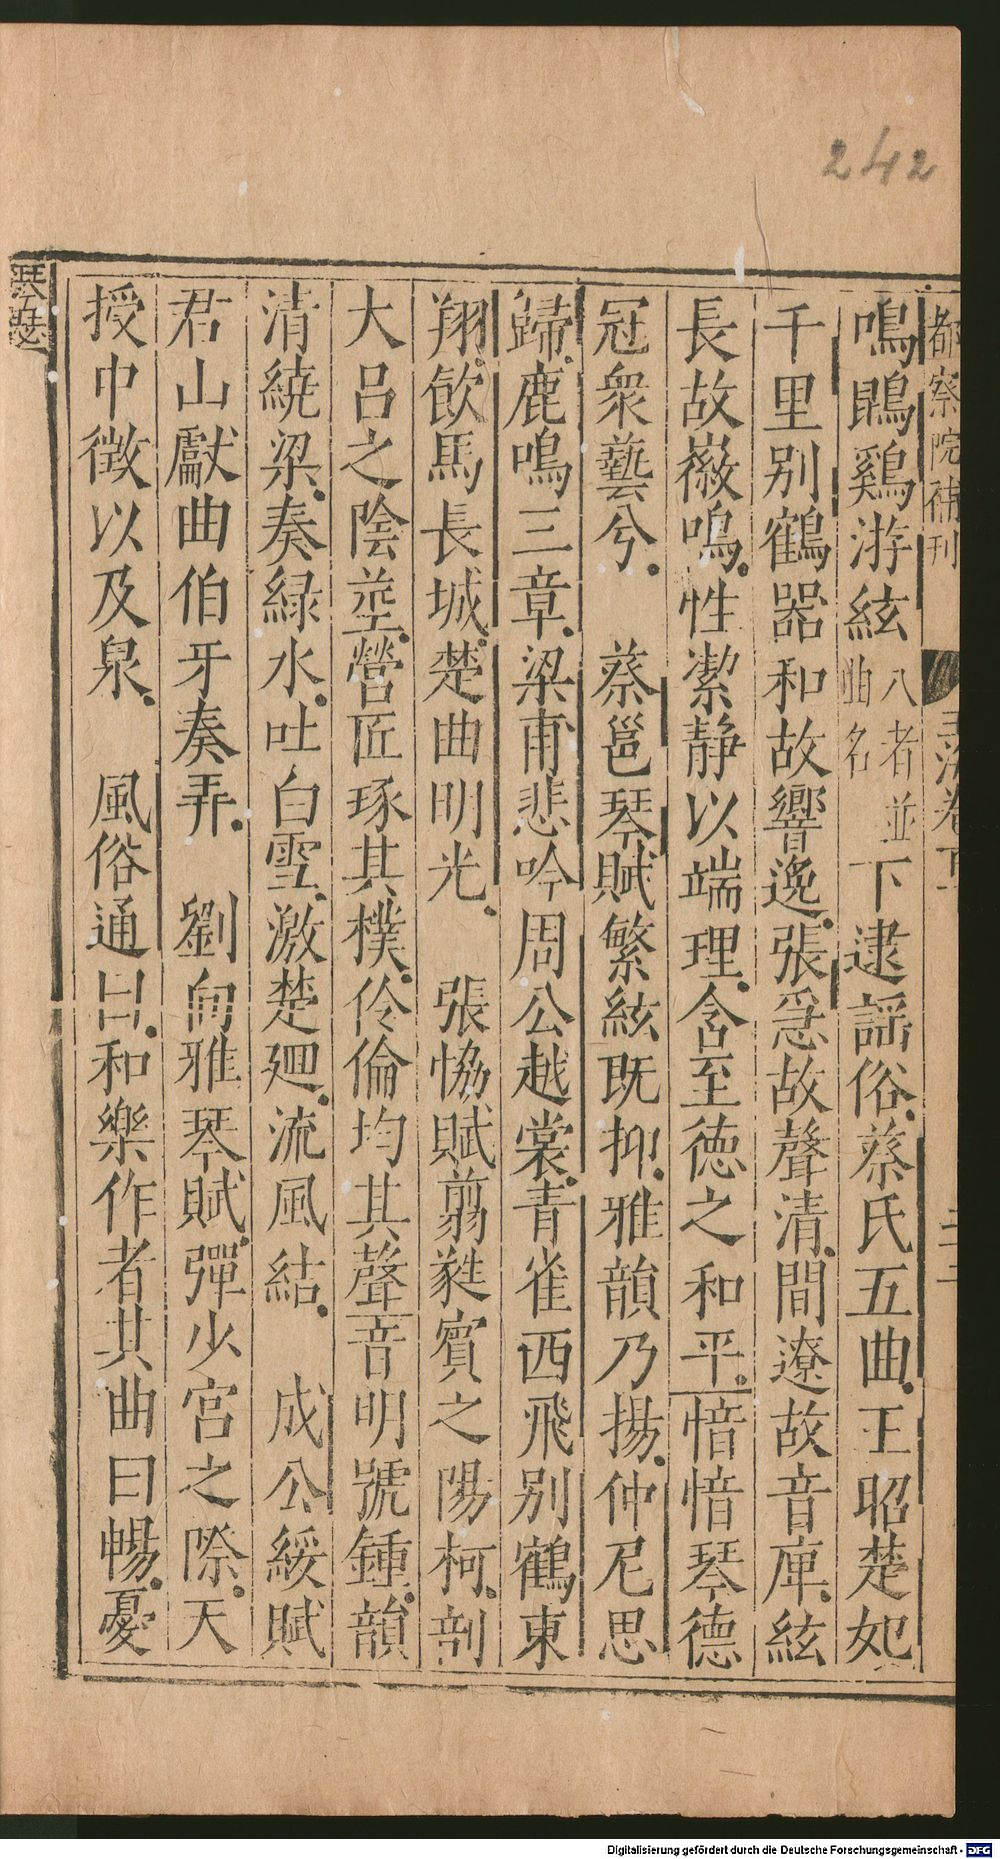 242
都察院補刊
玉海卷下
二二
鳴鵾鷄游絃八者並曲名下逮謡俗蔡氏五曲王昭楚妃
千里别鶴器和故響逸張急故聲清間遼故音庳絃
長故徽鳴性潔静以端理含至德之和平愔愔琴德
冠衆藝兮 蔡邕琴賦繁絃既抑雅韻乃揚仲尼思
歸鹿鳴三章梁甫悲吟周公越裳青雀西飛别鶴東
翔飲馬長城楚曲明光 張恊賦翦蕤賓之陽柯剖
大吕之陰莖營匠琢其樸伶倫均其聲音明號鍾韻
清繞梁奏緑水吐白雪激楚廻流風結 成公綏賦
君山獻曲伯牙奏弄 劉向雅琴賦彈少宫之際天
授中徴以及泉 風俗通曰和樂作者其曲曰暢憂
琴瑟
Digitalisierung gefördert durch die Deutsche Forschungsgemeinschaft - DFG